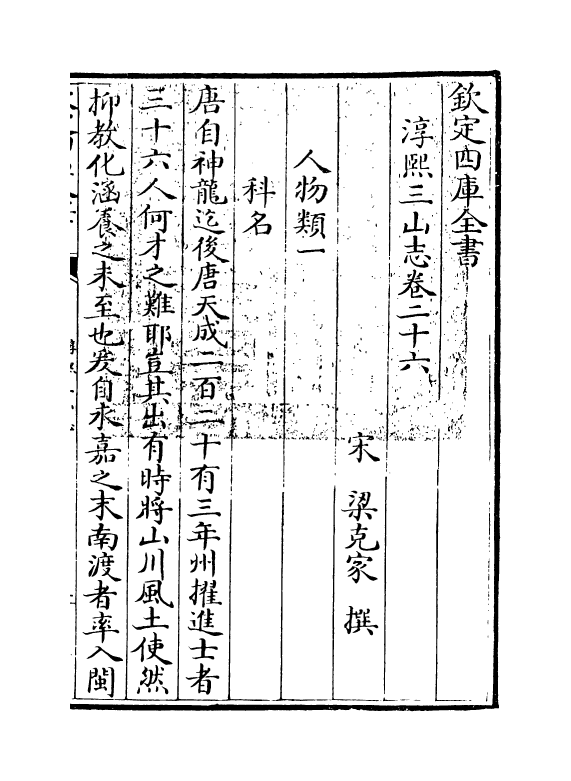 欽定四庫全書
淳熙三山志卷二十六
宋 梁克家 撰
人物類一
科名
唐自神龍迄後唐天成二百二十有三年州擢進士者
三十六人何才之難耶豈其出有時將山川風土使然
抑教化涵養之未至也爰自永嘉之末南渡者率入閩